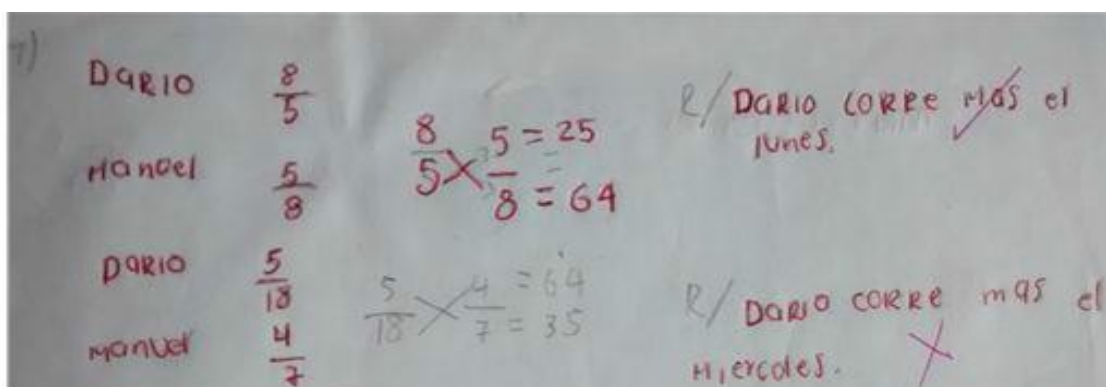 7)
DARIO 8/5
Manoel 5/8
8/5 X 5/8 = 25
= 64
R/ DARIO CORRE MAS el
lunes.
DARIO 5/18
Manuel 4/7
5/18 X 4/7 = 64
= 35
R/ DARIO CORRE mas el
Miercoles.